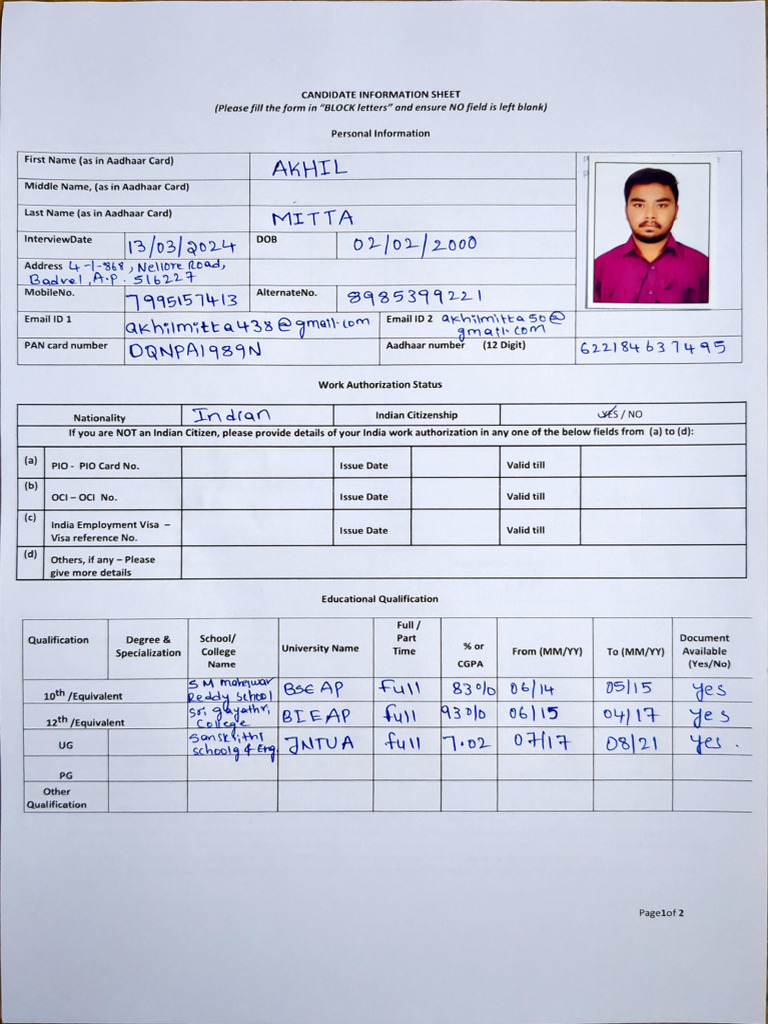 CANDIDATE INFORMATION SHEET
(Please fill the form in "BLOCK letters" and ensure NO field is left blank)
Personal Information
First Name (as in Aadhaar Card) AKHIL
Middle Name, (as in Aadhaar Card)
Last Name (as in Aadhaar Card) MITTA
InterviewDate 13/03/2024 DOB 02/02/2000
Address 4-1-868, Nellore Road,
Badvel, A.P. 516227
MobileNo. 7995157413 AlternateNo. 8985399221
Email ID 1 akhilmitta438@gmail.com Email ID 2 akhilmitta50@
gmail.com
PAN card number DQNPA1989N Aadhaar number (12 Digit) 622184637495
Work Authorization Status
Nationality Indian Indian Citizenship YES / NO
If you are NOT an Indian Citizen, please provide details of your India work authorization in any one of the below fields from (a) to (d):
(a) PIO - PIO Card No. Issue Date Valid till
(b) OCI – OCI No. Issue Date Valid till
(c) India Employment Visa –
Visa reference No. Issue Date Valid till
(d) Others, if any – Please
give more details
Educational Qualification
Qualification Degree & Specialization School/ College Name University Name Full / Part Time % or CGPA From (MM/YY) To (MM/YY) Document Available (Yes/No)
10th /Equivalent S M Maheswar Reddy School BSEAP full 83% 06/14 05/15 yes
12th /Equivalent Sri gayathri, College BIEAP full 93% 06/15 04/17 yes
UG Sanskrithi school of Eng. JNTUA full 7.02 07/17 08/21 yes.
PG
Other
Qualification
Page1of 2